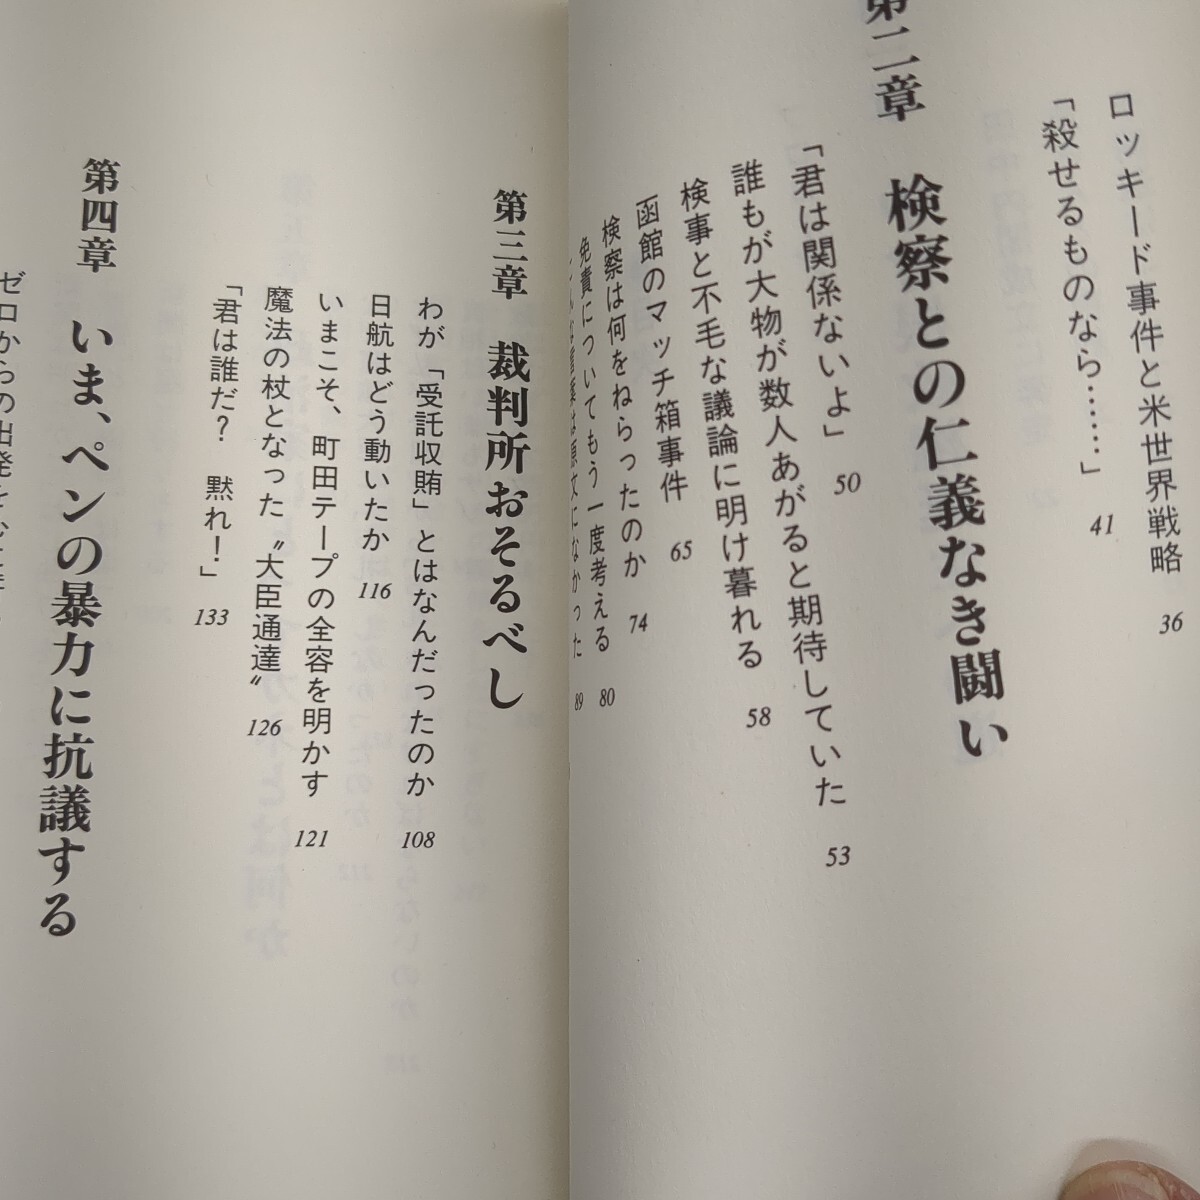 ロッキード事件と米世界戦略 36
「殺せるものなら……」 41
第二章 検察との仁義なき闘い
「君は関係ないよ」 50
誰もが大物が数人あがると期待していた 53
検事と不毛な議論に明け暮れる 58
函館のマッチ箱事件 65
検察は何をねらったのか 74
免責についてもう一度考える 80
こんな言葉は原文になかった 89
第三章 裁判所おそるべし
わが「受託収賄」とはなんだったのか 108
日航はどう動いたか 116
いまこそ、町田テープの全容を明かす 121
魔法の杖となった〝大臣通達〟 126
「君は誰だ？ 黙れ！」 133
第四章 いま、ペンの暴力に抗議する
ゼロからの出発を